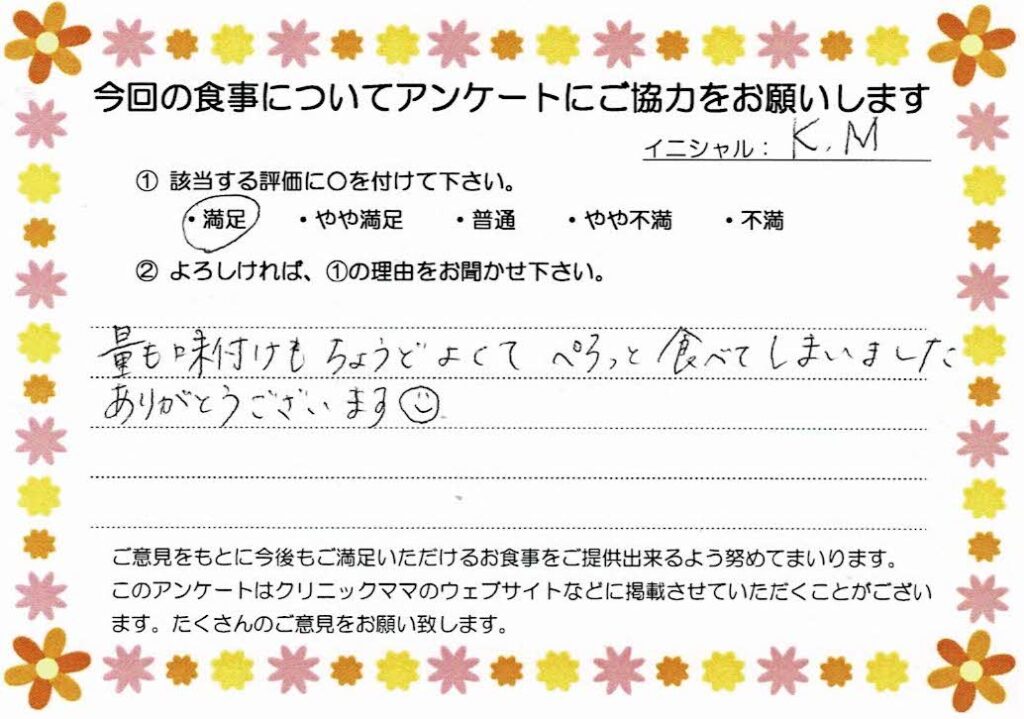 今回の食事についてアンケートにご協力をお願いします
イニシャル： K.M
① 該当する評価に〇を付けて下さい。
・満足 ・やや満足 ・普通 ・やや不満 ・不満
② よろしければ、①の理由をお聞かせ下さい。
量も味付けもちょうどよくて ぺろっと食べてしまいました
ありがとうございます☺
ご意見をもとに今後もご満足いただけるお食事をご提供出来るよう努めてまいります。
このアンケートはクリニックママのウェブサイトなどに掲載させていただくことがござい
ます。たくさんのご意見をお願い致します。